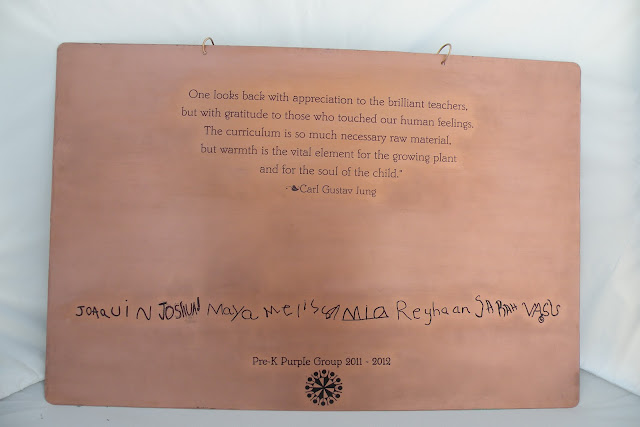 One looks back with appreciation to the brilliant teachers,
but with gratitude to those who touched our human feelings.
The curriculum is so much necessary raw material,
but warmth is the vital element for the growing plant
and for the soul of the child."
-Carl Gustav Jung
JOAQUIN JOSHUA Maya Melissa MIA Reyhaan SARAH VASU
Pre-K Purple Group 2011 - 2012